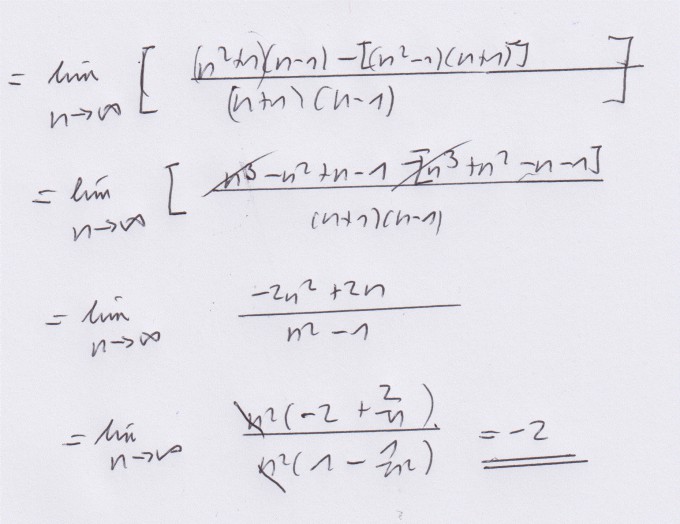 = lim n→∞ [ ((n²+1)(n-1) - [(n²-1)(n+1)]) / ((n+1)(n-1)) ]
= lim n→∞ [ (n³ - n² + n - 1 - [n³ + n² - n - 1]) / ((n+1)(n-1))
= lim n→∞ (-2n² + 2n) / (n² - 1)
= lim n→∞ (n²(-2 + 2/n)) / (n²(1 - 1/n²)) = -2